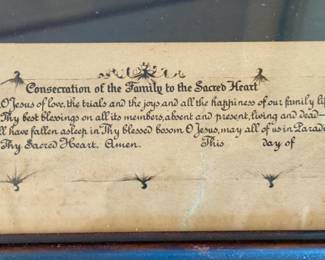 Consecration of the Family to the Sacred Heart
O Jesus of love, the trials and the joys and all the happiness of our family
Thy best blessings on all its members, absent and present, living and dead—
have fallen asleep in Thy blessed bosom O Jesus, may all of us in
Thy Sacred Heart. Amen. This day of